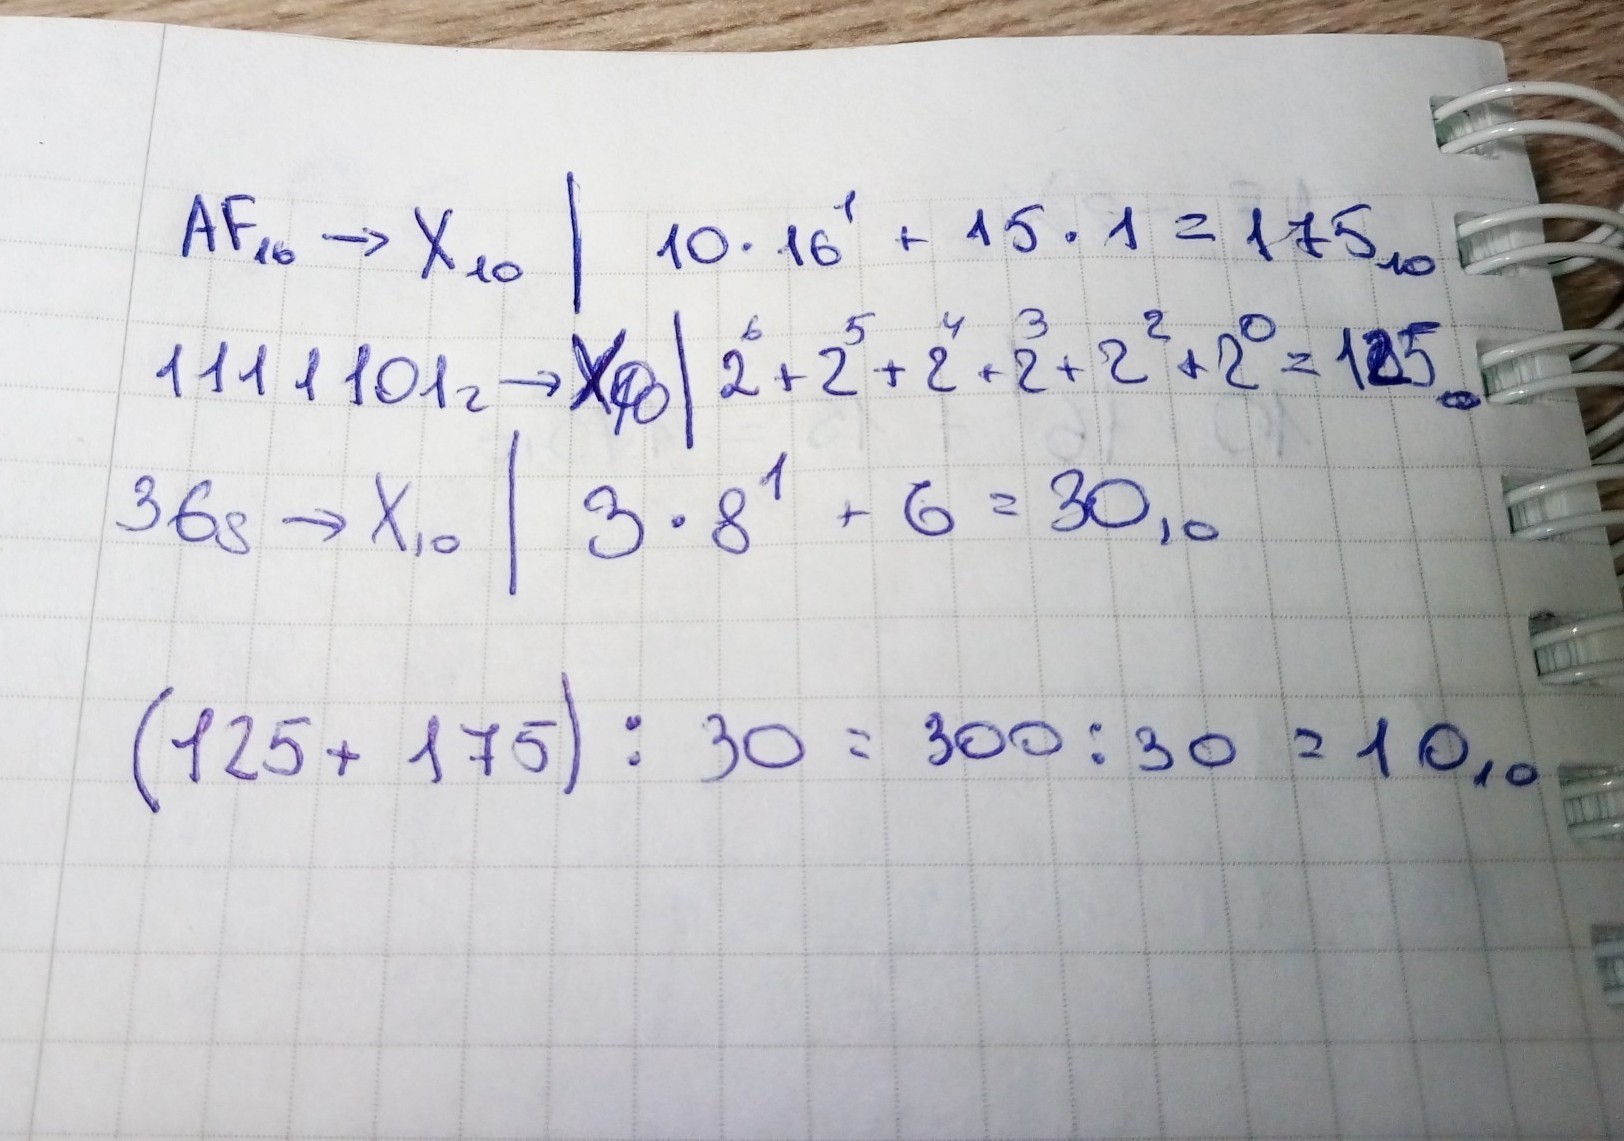 AF₁₆ → X₁₀ | 10 · 16¹ + 15 · 1 = 175₁₀
1111101₂ → X₁₀ | 2⁶ + 2⁵ + 2⁴ + 2³ + 2² + 2⁰ = 125₁₀
36₈ → X₁₀ | 3 · 8¹ + 6 = 30₁₀
(125 + 175) : 30 = 300 : 30 = 10₁₀